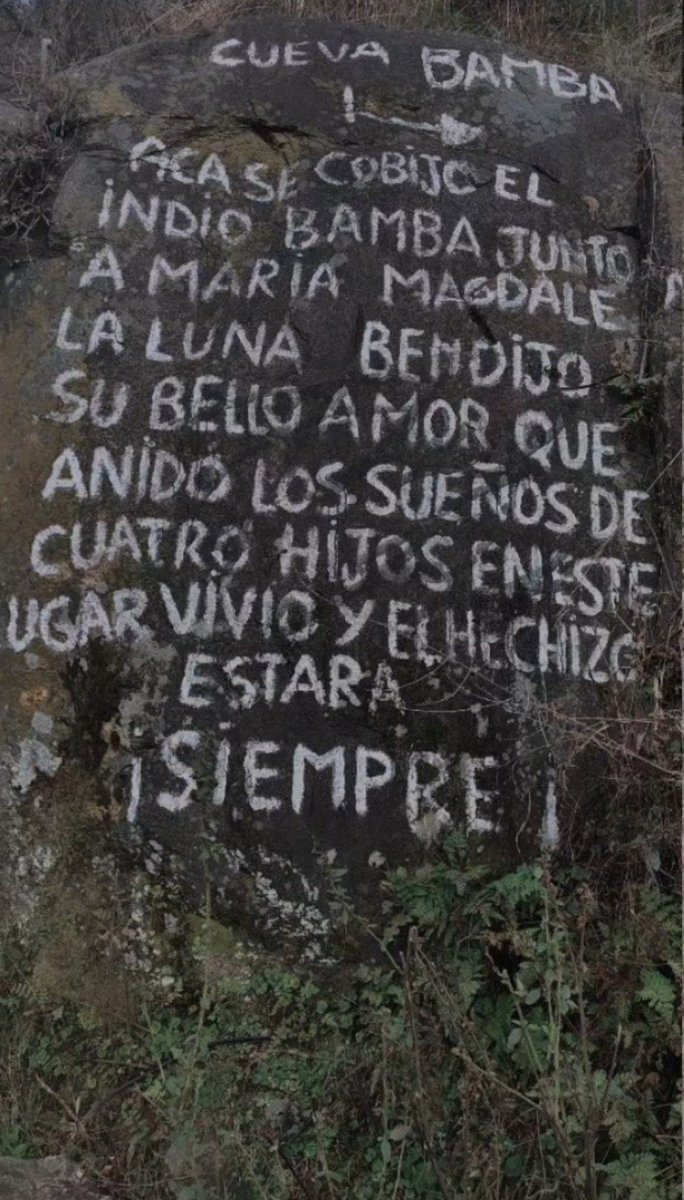 CUEVA BAMBA
ACA SE COBIJO EL
INDIO BAMBA JUNTO
A MARIA MAGDALE
LA LUNA BENDIJO
SU BELLO AMOR QUE
ANIDO LOS SUEÑOS DE
CUATRO HIJOS EN ESTE
UGAR VIVIO Y EL HECHIZO
ESTARA
¡SIEMPRE!